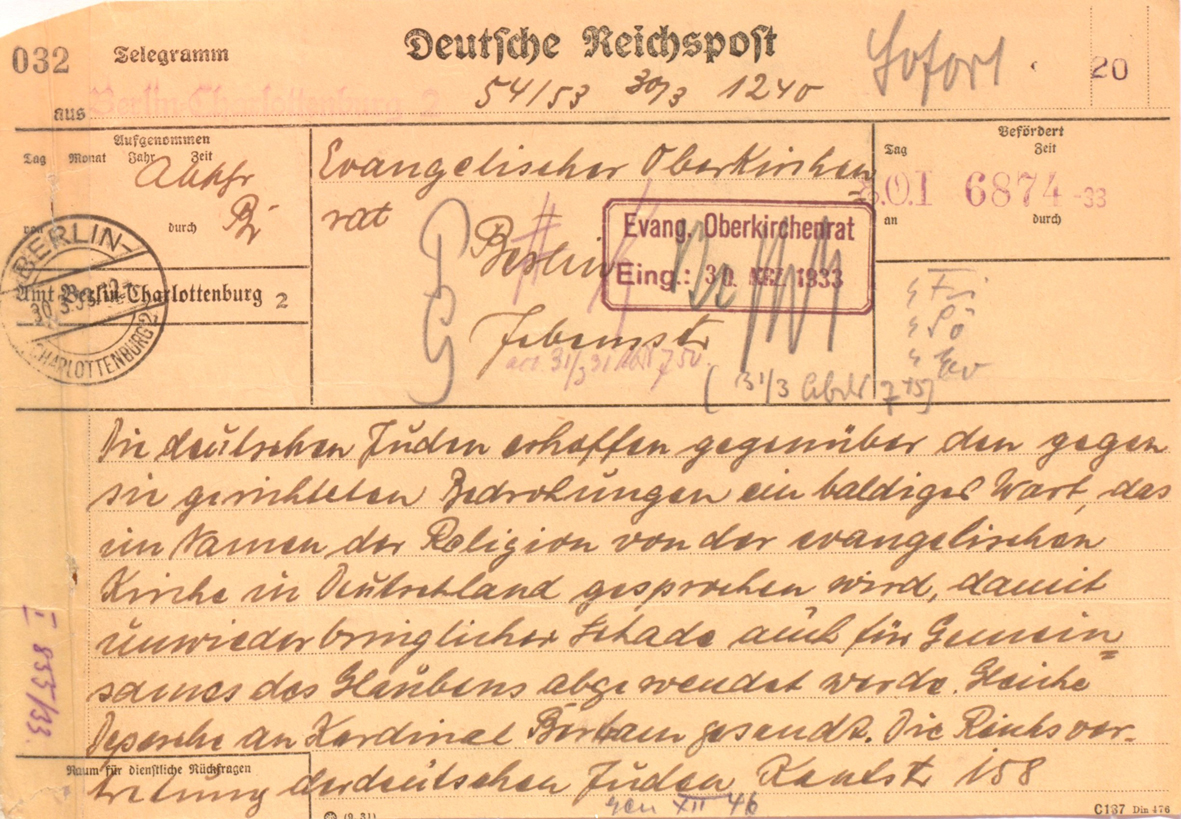 032 Telegramm Deutsche Reichspost Sofort 20
aus Berlin-Charlottenburg 2 54/53 30/3 1240
Aufgenommen
Tag Monat Jahr Zeit
durch
Befördert
Tag Zeit
E.O.I 6874-33
an durch
Evangelischer Oberkirchen
rat
Berlin
Jebenstr.
Evang. Oberkirchenrat
Eing.: 30. MRZ. 1933
BERLIN-
30.3.33
CHARLOTTENBURG 2
Amt Berlin-Charlottenburg 2
31/3
(31/3 7 45)
Die deutschen Juden erhoffen gegenüber den gegen
sie gerichteten Bedrohungen ein baldiges Wort, das
im Namen der Religion von der evangelischen
Kirche in Deutschland gesprochen wird, damit
unwiederbringlicher Schade auch für Gemein
sames des Glaubens abgewendet werde. Gleiche
Depesche an Kardinal gesandt. Die Reichsver-
tretung der deutschen Juden Kantstr 158
I 855/33.
Raum für dienstliche Rückfragen
XII 46
C187 Din 476